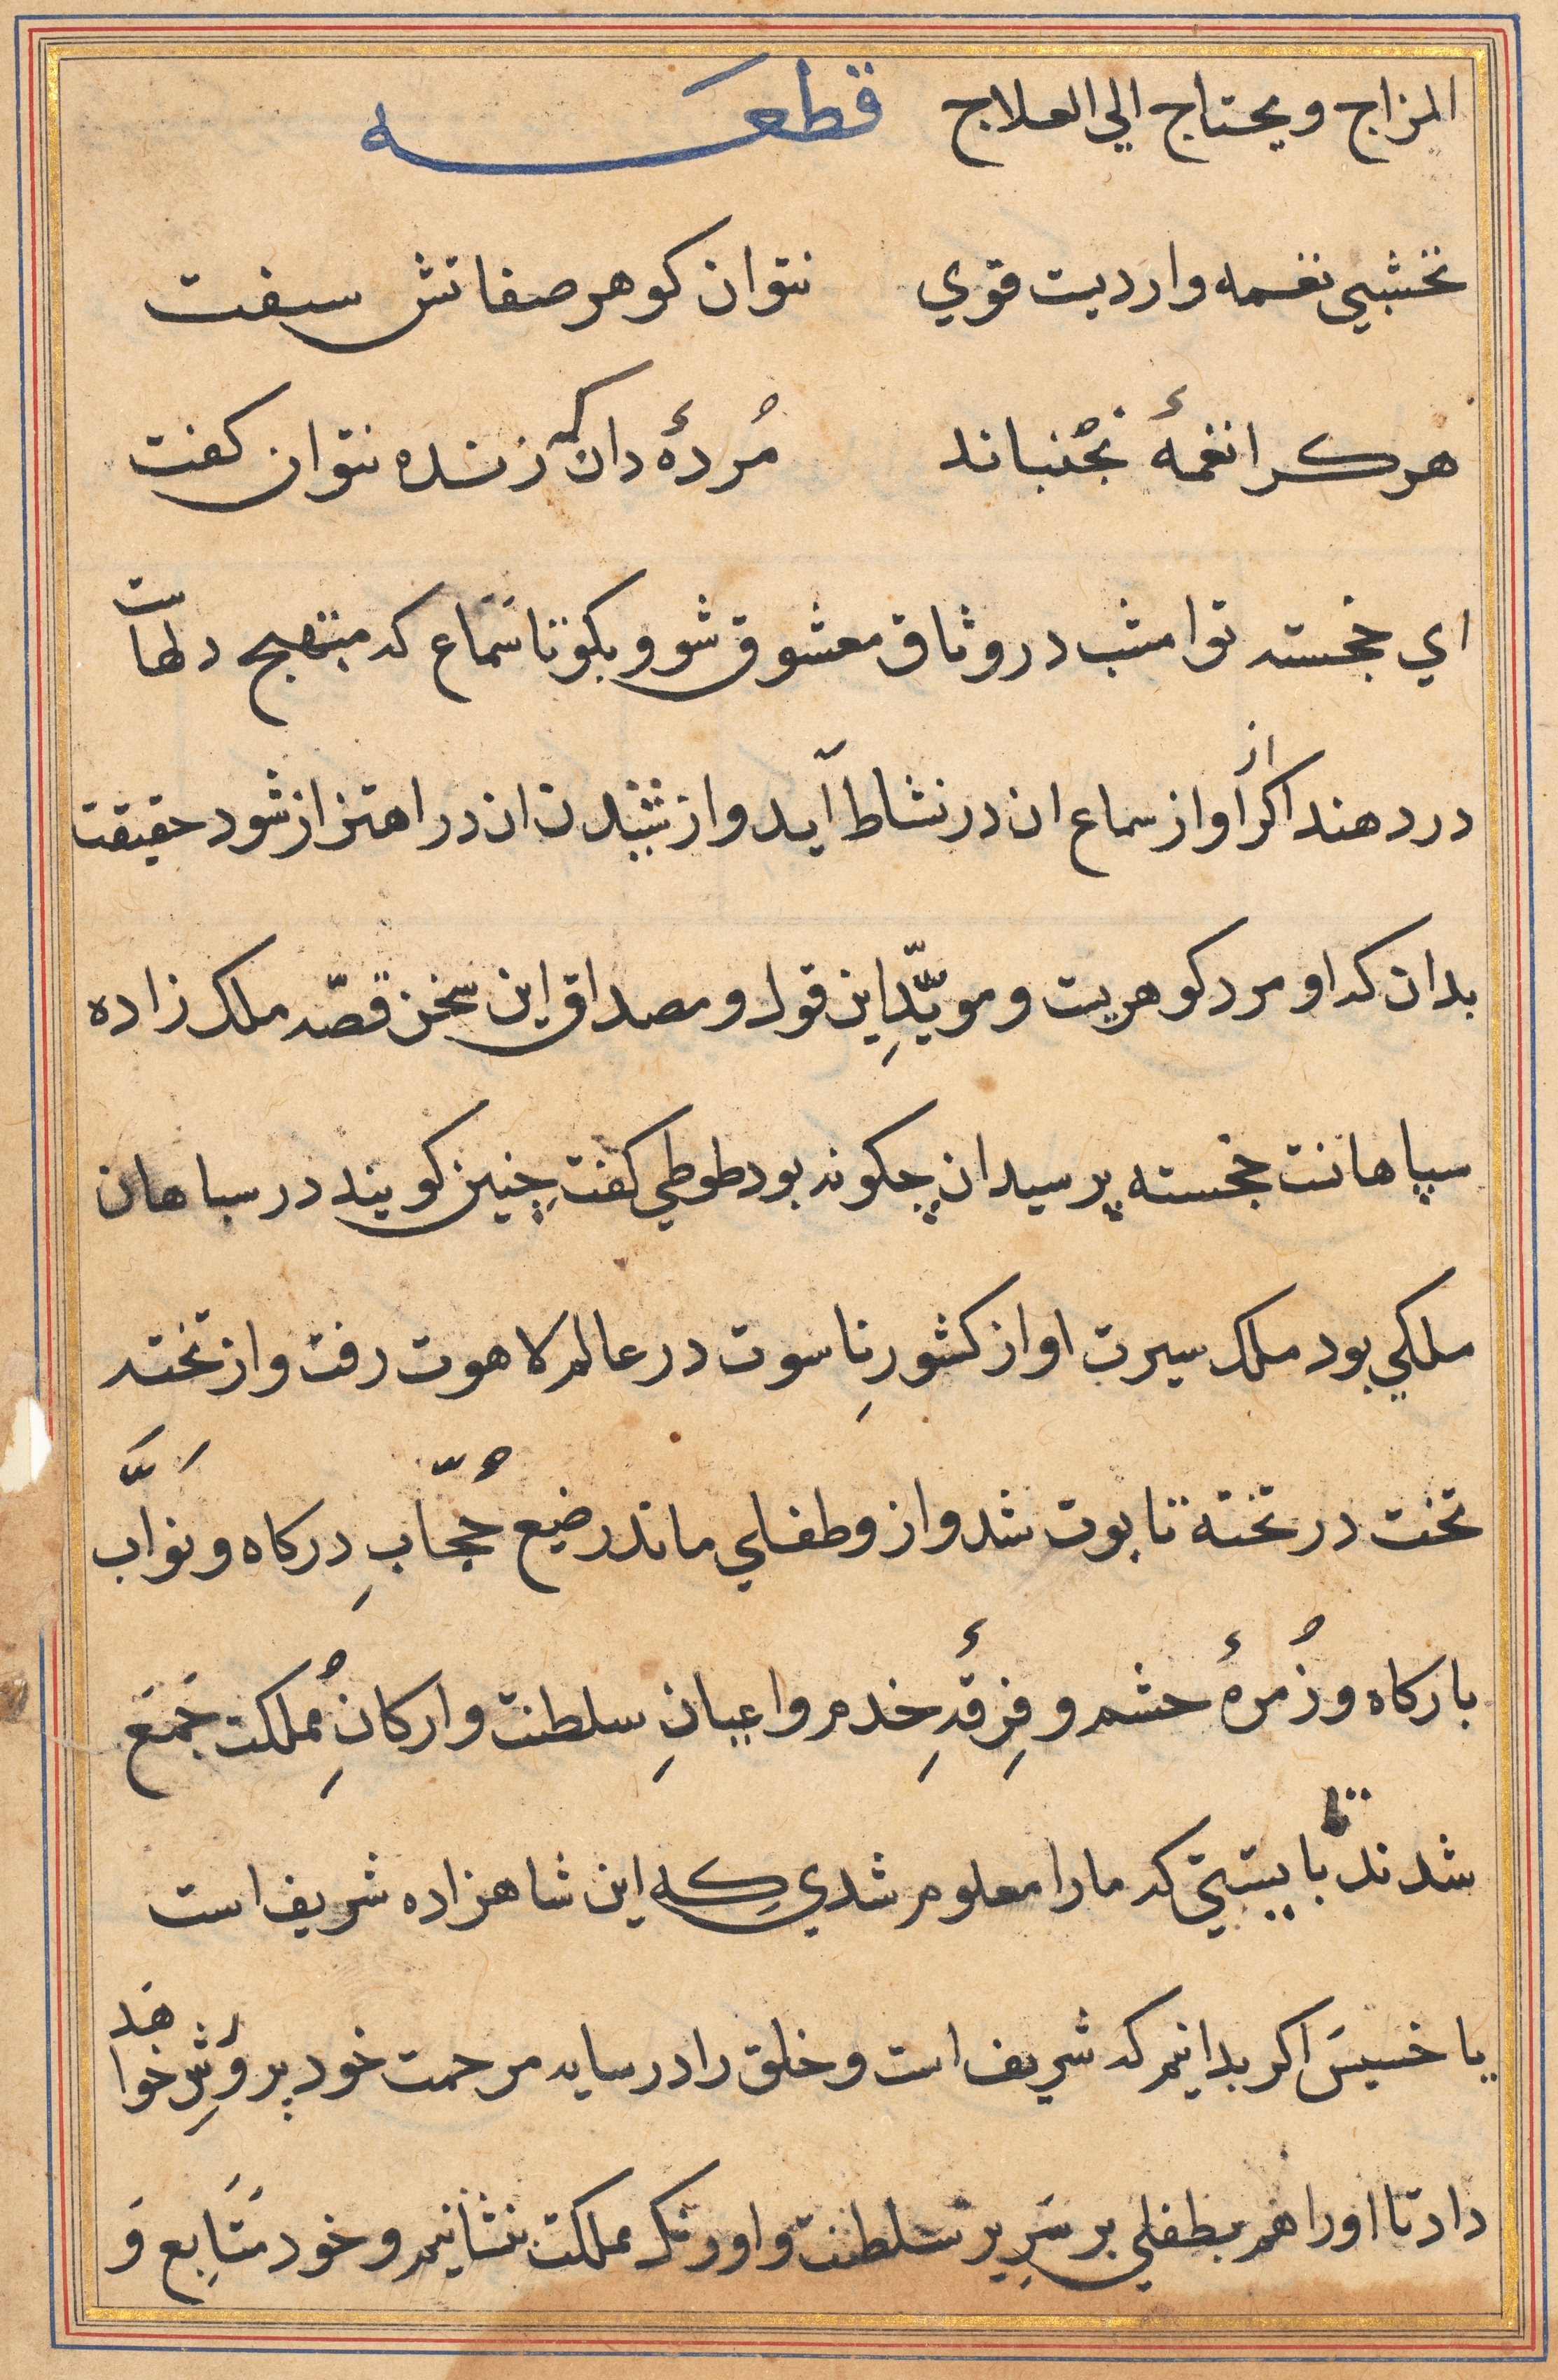 المزاج ويحتاج الي العلاج قطعـــه
نخشبي نغمه واردیست قوي نتوان کوهر صفاتش سفت
هر کرا نغمهٔ نجُنباند مُردهٔ دان که زنده نتوان کفت
اي خجسته تو امشب در وثاق معشوق شو و بکو تا سَماع که مبتهج دلهاست
در دهند اکر او از سماع ان در نشاط آید و از شنیدن ان در اهتزاز شود حقیقت
بدان که او مرد کوهریست و مویّدِ این قول و مصداق این سخن قصّه ملک زاده
سپاهانت خجسته پرسید ان چکونه بود طوطي کفت چنین کویند در سباهان
ملکي بود ملک سیرت او از کشورِ ناسوت در عالم لاهوت رفت و از تخته
تخت در تخته تابوت شد و از و طفلي ماند رضیع حُجّابِ درکاه و نوَّاب
بارکاه و زُمرهٔ حشم و فِرقهٔ خِدم و اعیانِ سلطنت و ارکانِ مُملکت جَمَع
شدند تا بایستي که ما را معلوم شدي کِه این شاهزاده شریف است
یا خسیسَ اکر بدانیم که شریف است و خلق را در سایه مرحمت خود پروُرِش خواهَد
داد تا او را هَم بطفلي بر سَرِیر سَلطنت و اورنک مملکت بنشانیم و خود مَتَابِع وَ